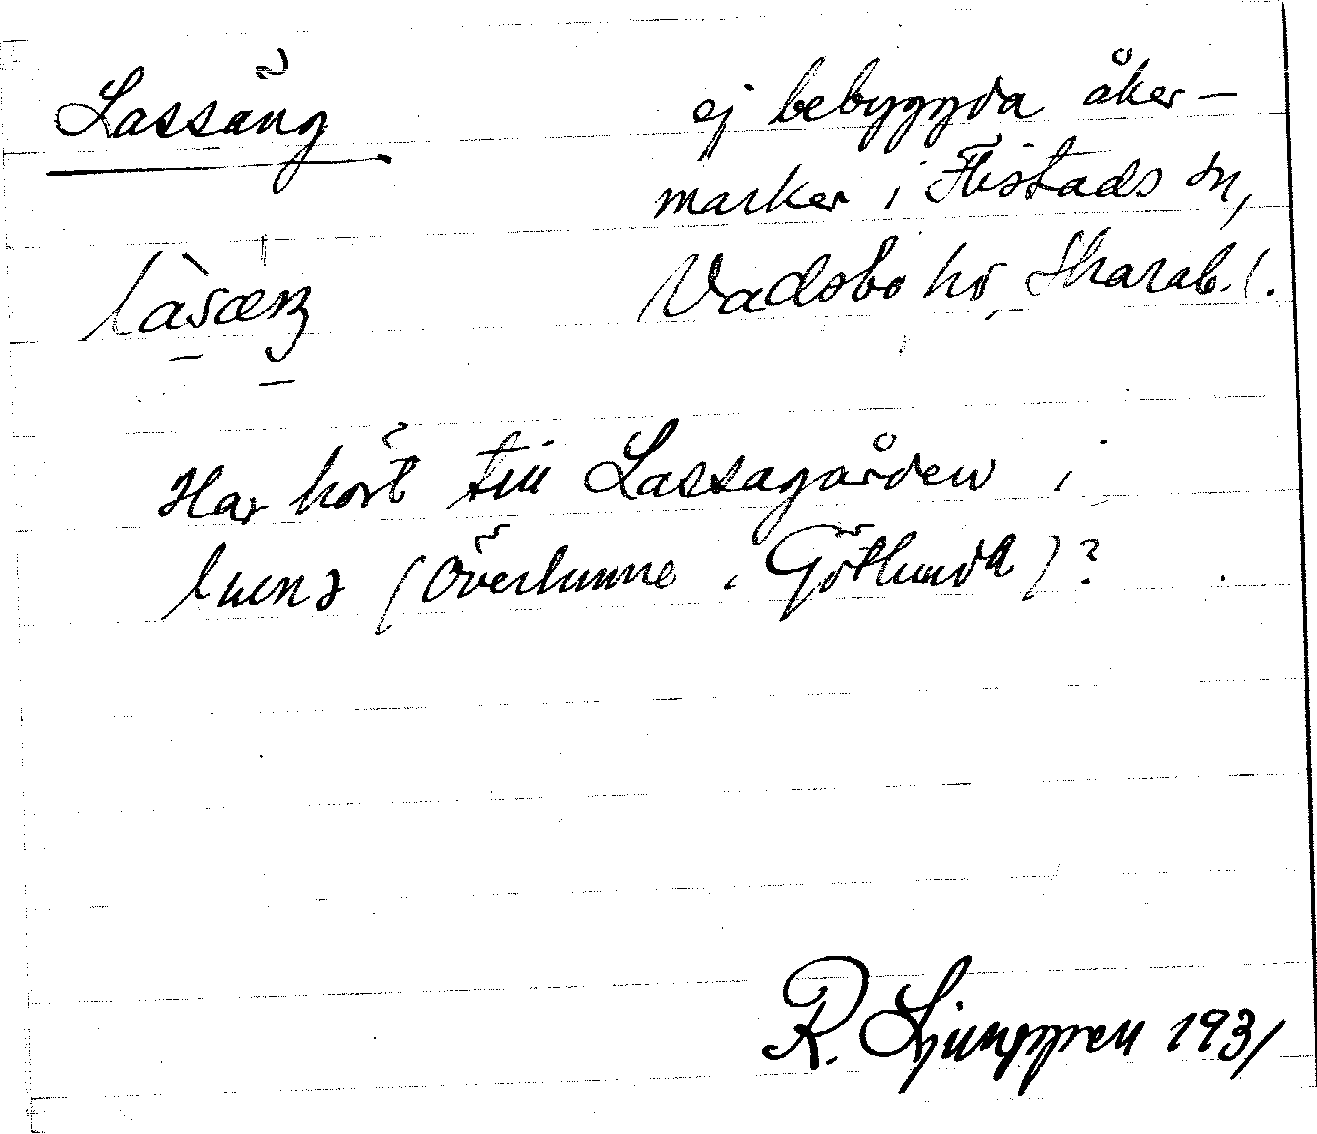 Lassäng
ej bebyggda åker-
marker i Flistads sn,
Vadsbo hd, Skarab. l.
Har hört till Lassagården i
(Överlunne i Götlunda)?
R. Ljunggren 1931